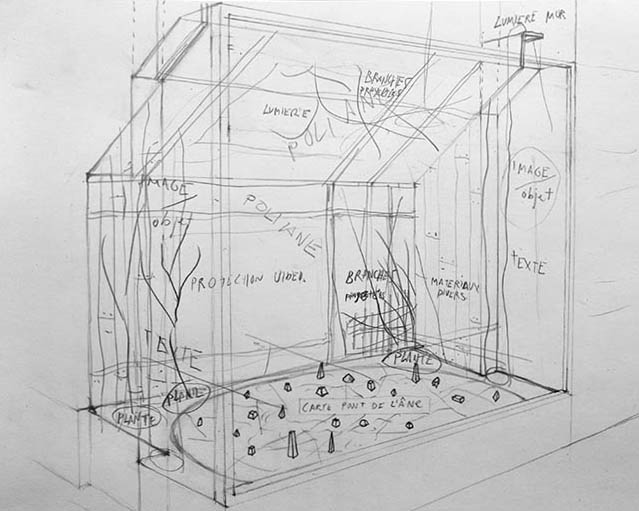 LUMIERE MUR
BRANCHES
PROJETÉES
LUMIERE
POLIANE
IMAGE
objet
IMAGE
objet
POLIANE
TEXTE
PROJECTION VIDEO.
BRANCHES
MATERIAUX
DIVERS
TEXTE
PLANTE
PLANTE
PLANTE
CARTE PONT DE L'ÂNE